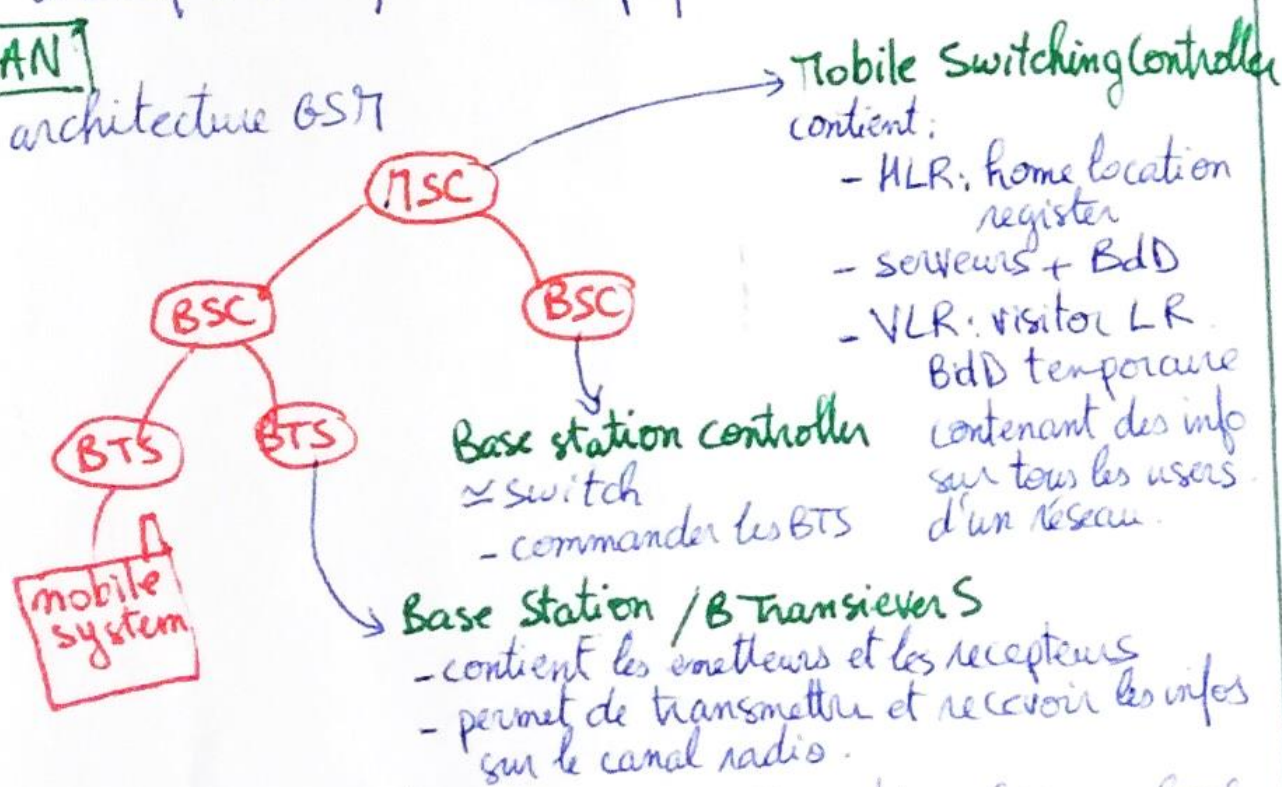 AN
architecture GSM
MSC
BSC
BSC
BTS
BTS
mobile
system
Mobile Switching Controller
contient:
- HLR: home location
register
- serveurs + BdD
- VLR: visitor LR
BdD temporaire
contenant des info
sur tous les users
d'un réseau.
Base station controller
≃ switch
- commander les BTS
Base Station / B Transiever S
- contient les émetteurs et les recepteurs
- permet de transmettre et recevoir les infos
sur le canal radio.